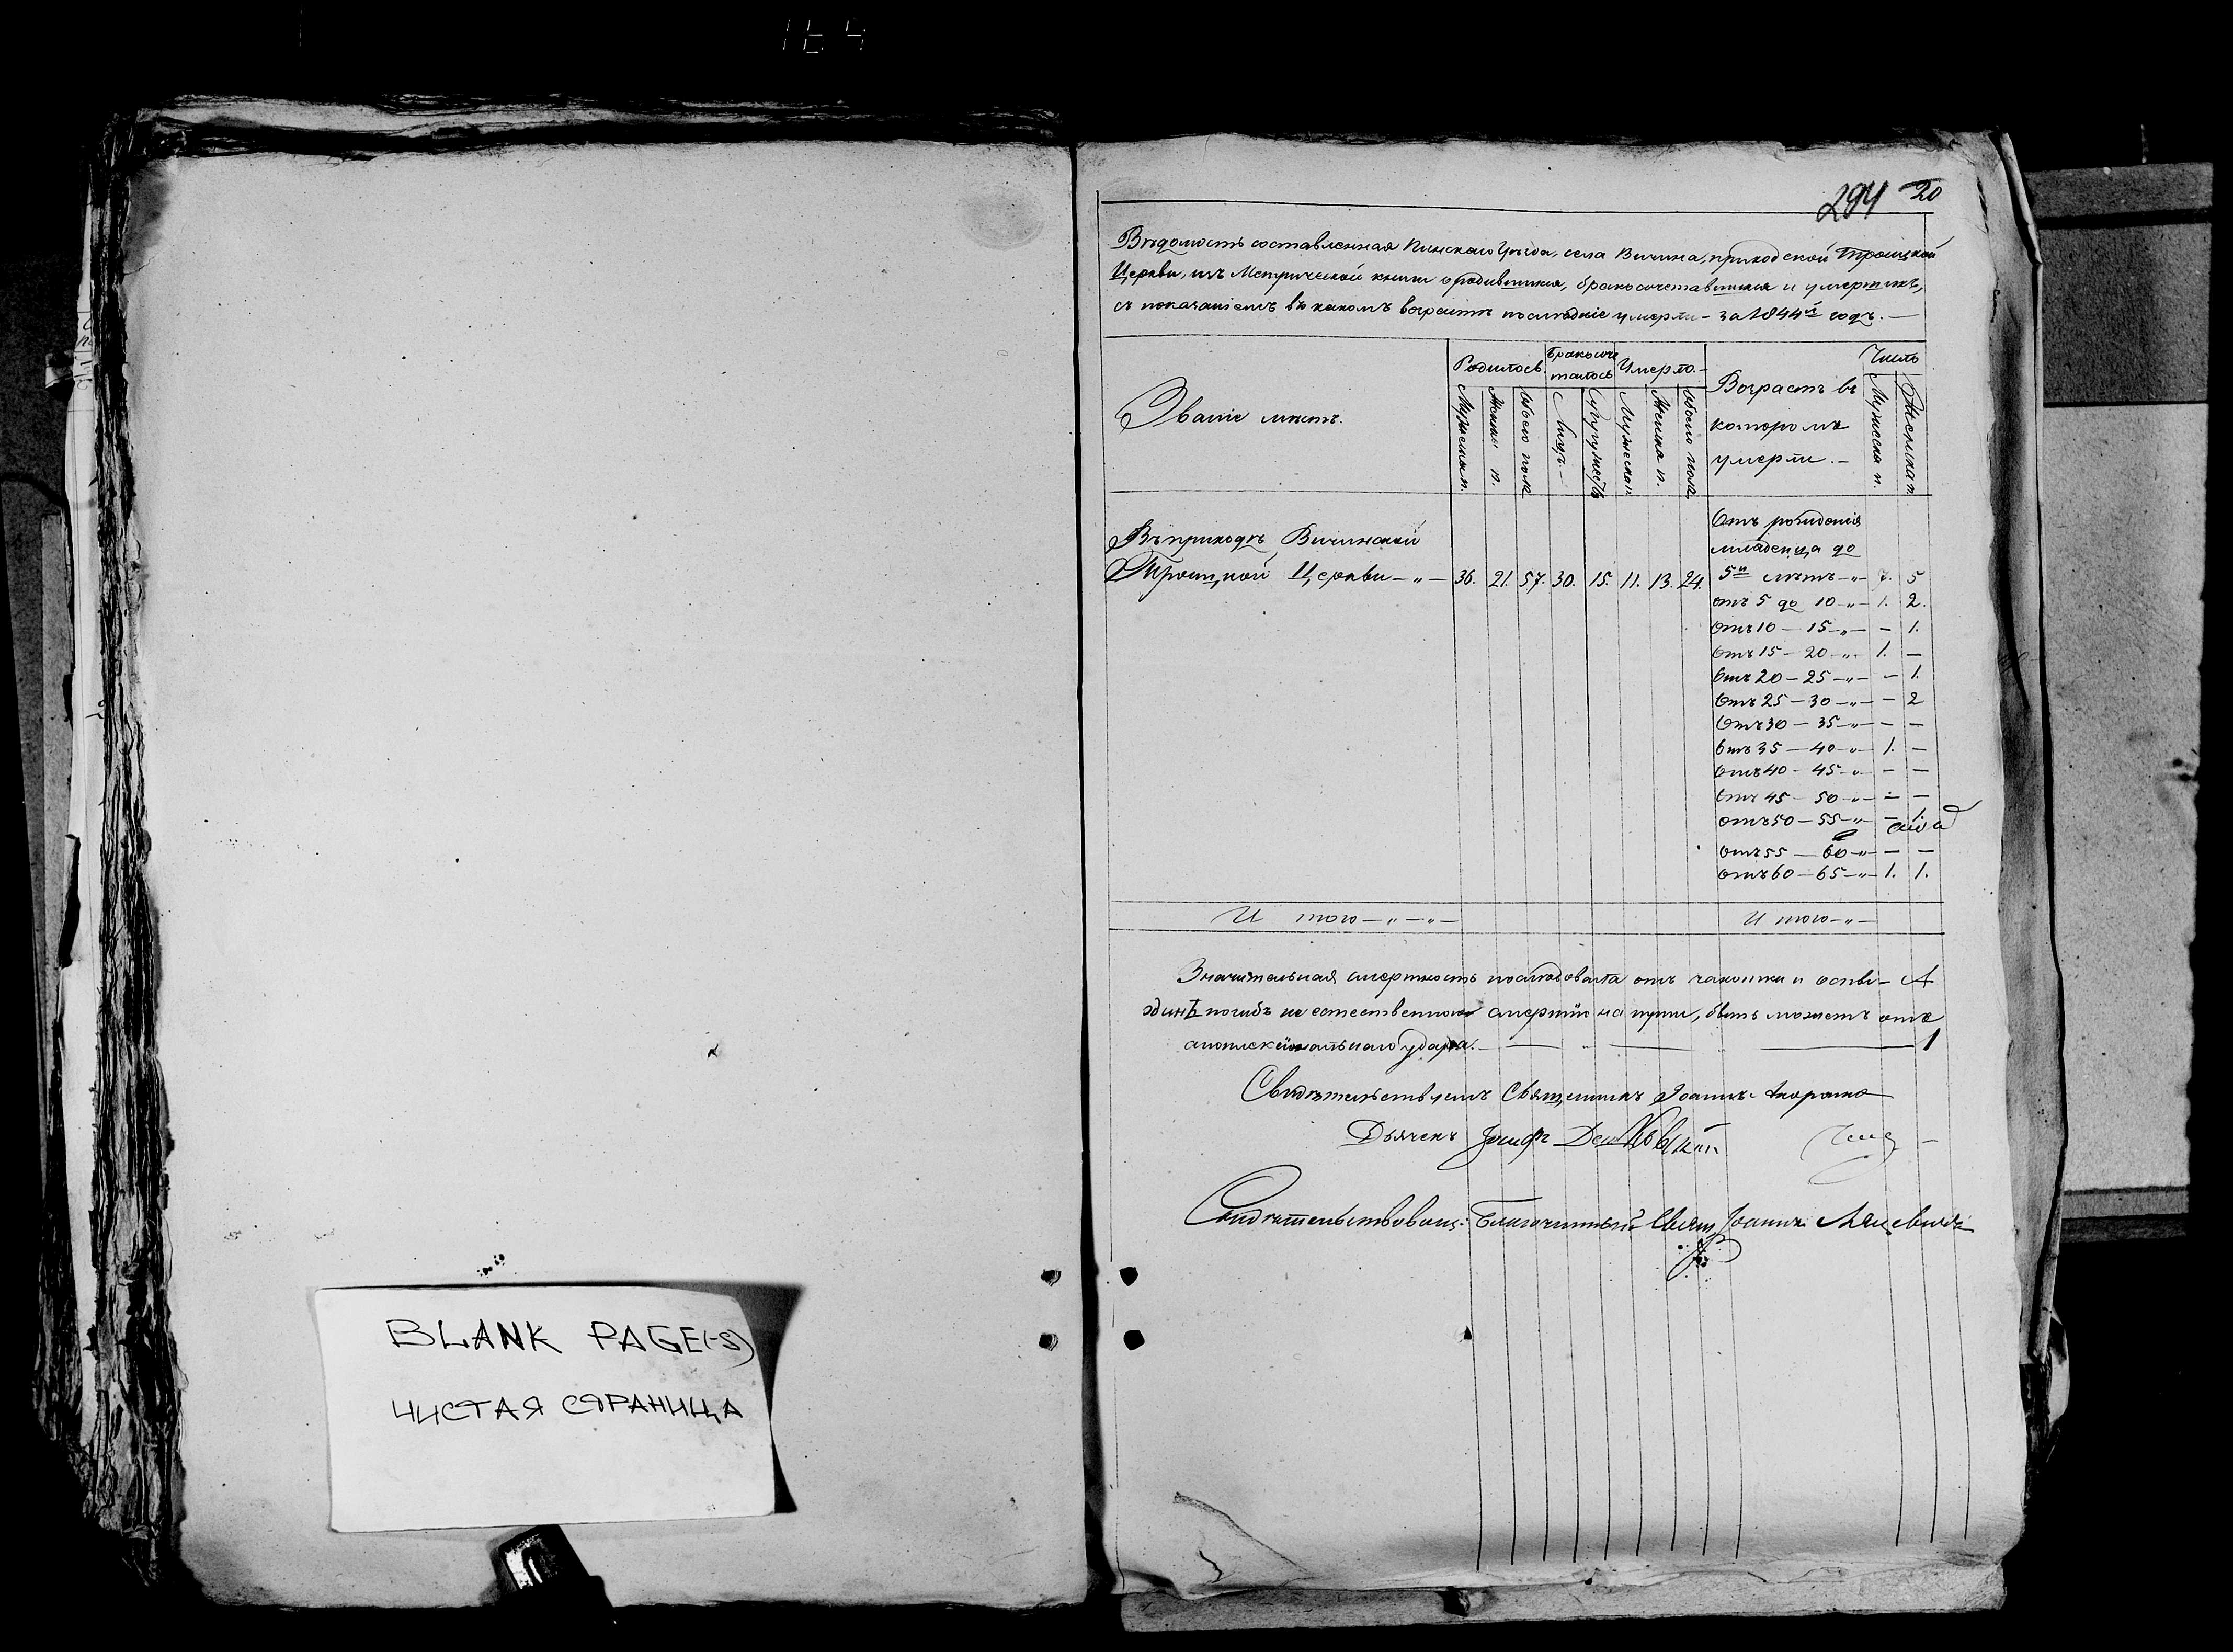 164
294 20
Вѣдомость составленная Пинскаго Уѣзда, села Вичина, приходской Троицкой
Церкви, изъ Метрической книги о родившихся, бракосочетавшихся и умершихъ,
съ показаніемъ въ какомъ возрастѣ послѣдніе умерли – за 1844й годъ. —
Званіе мѣстъ.
Родилось.
Бракосоче
талось
Умерло. –
Возрастъ въ
которомъ
умерли. –
Число
Мужеска п.
Женска п.
Обоего пола
Лицъ –
Супружествъ
Мужеска п.
Женска п.
Обоего пола
Мужеска п.
Женска п.
Въ приходѣ Вичинской
Троицкой Церкви – „ – 36. 21. 57. 30. 15. 11. 13. 24.
Отъ рожденія
младенца до
5и лѣтъ – „ – 7. 5
отъ 5 до 10 – „ – 1. 2.
Отъ 10 – 15 – „ – – 1.
Отъ 15 – 20 – „ – 1. –
Отъ 20 – 25 – „ – – 1.
Отъ 25 – 30 – „ – – 2
Отъ 30 – 35 – „ – – –
Отъ 35 – 40 – „ – 1. –
Отъ 40 – 45 – „ – – –
Отъ 45 – 50 – „ – – –
отъ 50 – 55 – „ – – 1.
Отъ 55 – 60 – „ – – –
отъ 60 – 65 – „ – 1. 1.
И того – „ – „ –
И того – „ –
Значительная смертность послѣдовала отъ чахотки и оспы –
одинъ погибъ не естественною смертію на пути, быть можетъ отъ
апоплексіональнаго удара. — 1
Свидѣтельствуемъ Священникъ Іоаннъ
Дьячекъ Іосифъ
Свидѣтельствовалъ: Благочинный Свящ. Іоаннъ
BLANK PAGE(-S)
ЧИСТАЯ СТРАНИЦА